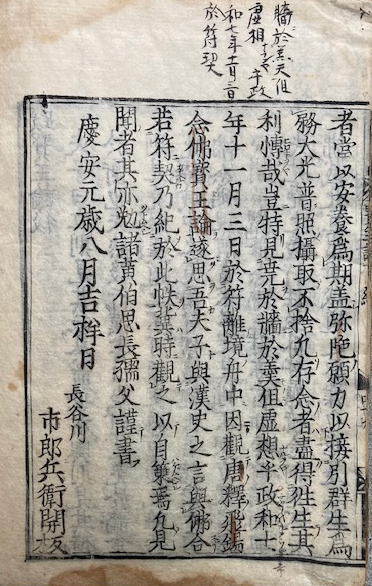 牆於羹
虛相
和七年十一月三日
於符契
者當以安養爲期盖弥陀願力以接別群生爲
務大光普照攝取不捨凢存念者盡得徃生其
利愽哉豈特見尭於牆於羹但虛想乎政和七
年十一月三日於符離境舟中因觀唐釋飛錫
念佛寶王論遂思吾夫子與漢史之言與佛合
若符契乃紀於此帙冀時觀之以自策焉凢見
聞者其亦勉諸黄伯思長孺父謹書
慶安元歳八月吉祥日
長谷川
市郎兵衛開板